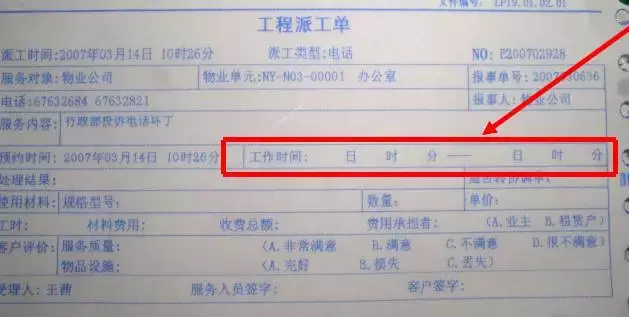 文件编号: LP19.01.02.01
工程派工单
派工时间:2007年03月14日 10时26分 派工类型:电话 NO: P200702928
服务对象:物业公司 物业单元:NY-N03-00001 办公室 报事单号:2007030636
电话:67632684 67632821 报事人:物业公司
服务内容: 行政部投诉电话坏了
预约时间: 2007年03月14日 10时26分 工作时间: 日 时 分 —— 日 时 分
处理结果:
使用材料: 规格型号: 数量: 单价:
工时: 材料费用: 收费总额: 费用承担者: (A.业主 B.租赁户)
客户评价: 服务质量: (A.非常满意 B.满意 C.不满意 D.很不满意)
物品设施: (A.完好 B.损失 C.丢失)
受理人: 王茜 服务人员签字: 客户签字: